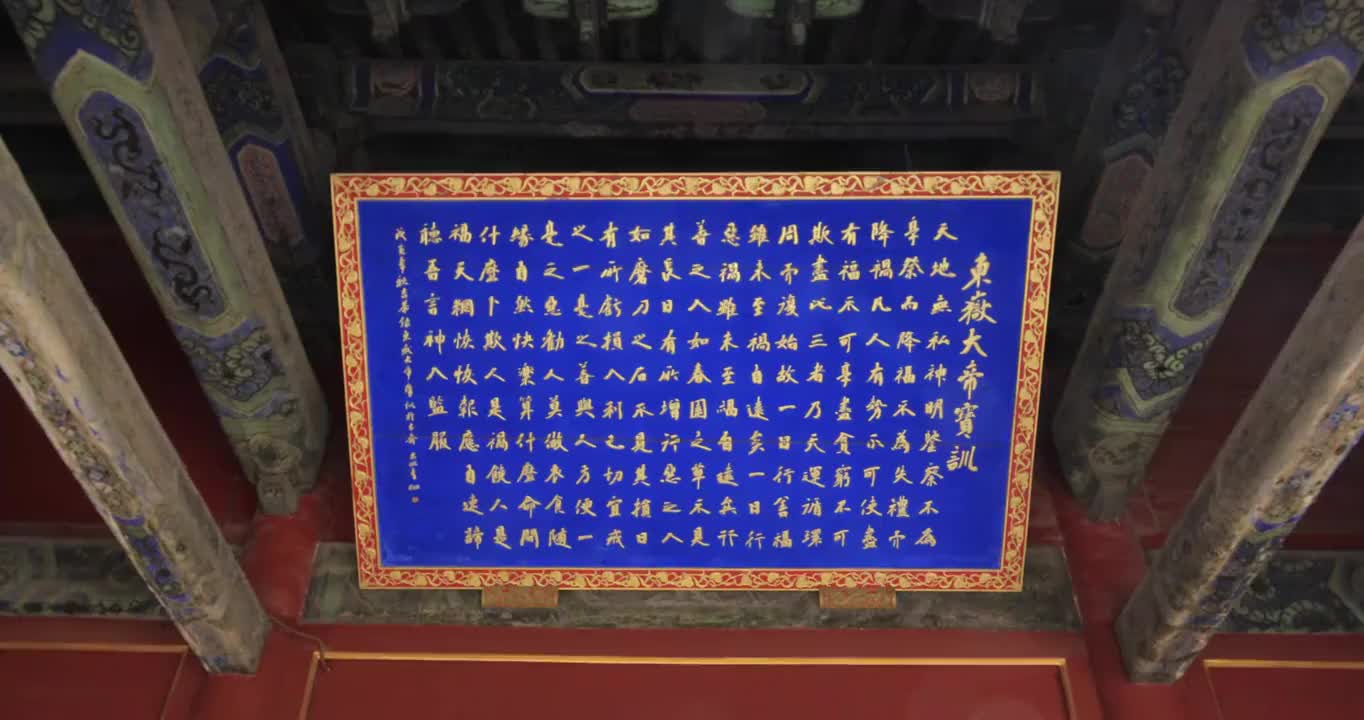 東嶽大帝寶訓
天地無私神明鑒察不為
享祭而降福不為失禮而
降禍凡人有勢不可使盡
有福不可享盡貧窮不可
欺盡此三者乃天運循環
周而復始故一日行善福
雖未至禍自遠矣一日行
惡禍雖未至福自遠矣行
善之人如春園之草不見
其長日有所增行惡之人
如磨刀之石不見其損日
有所虧損人利己切宜戒
之一毫之善與人方便一
毫之惡勸人莫做衣食隨
緣自然快樂算什麼命問
什麼卜欺人是禍饒人是
福天網恢恢報應自速諦
聽吾言神人監服